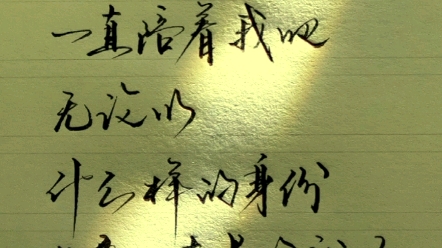 一直陪着我吧
无论以
什么样的身份